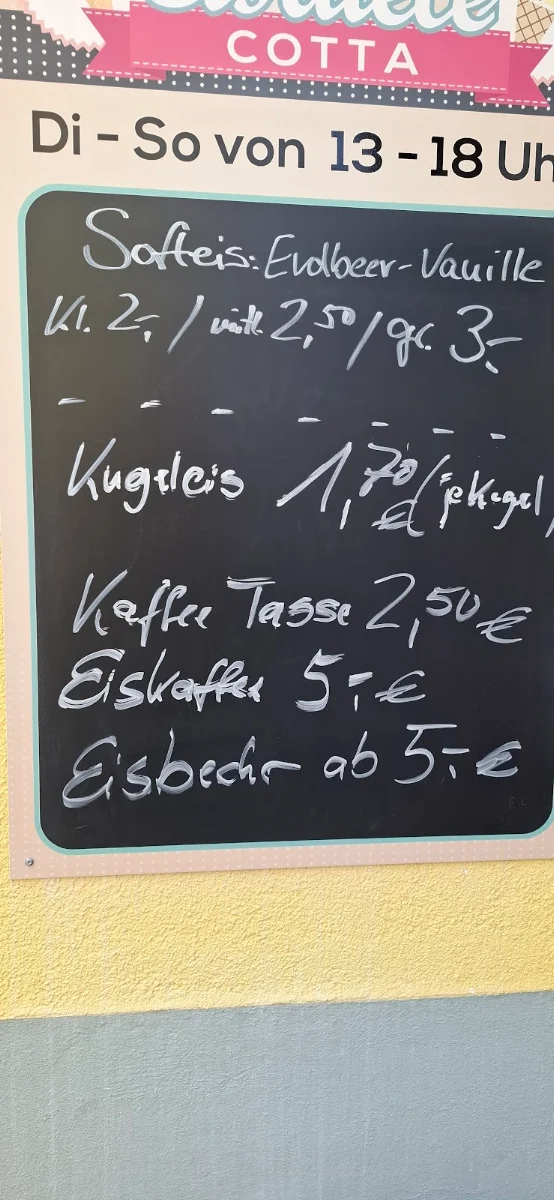 COTTA
Di - So von 13 - 18 Uh
Softeis: Erdbeer-Vanille
Kl. 2,- / mittl. 2,50 / gr. 3,-
Kugeleis 1,70 € (je Kugel)
Kaffee Tasse 2,50 €
Eiskaffee 5,- €
Eisbecher ab 5,- €